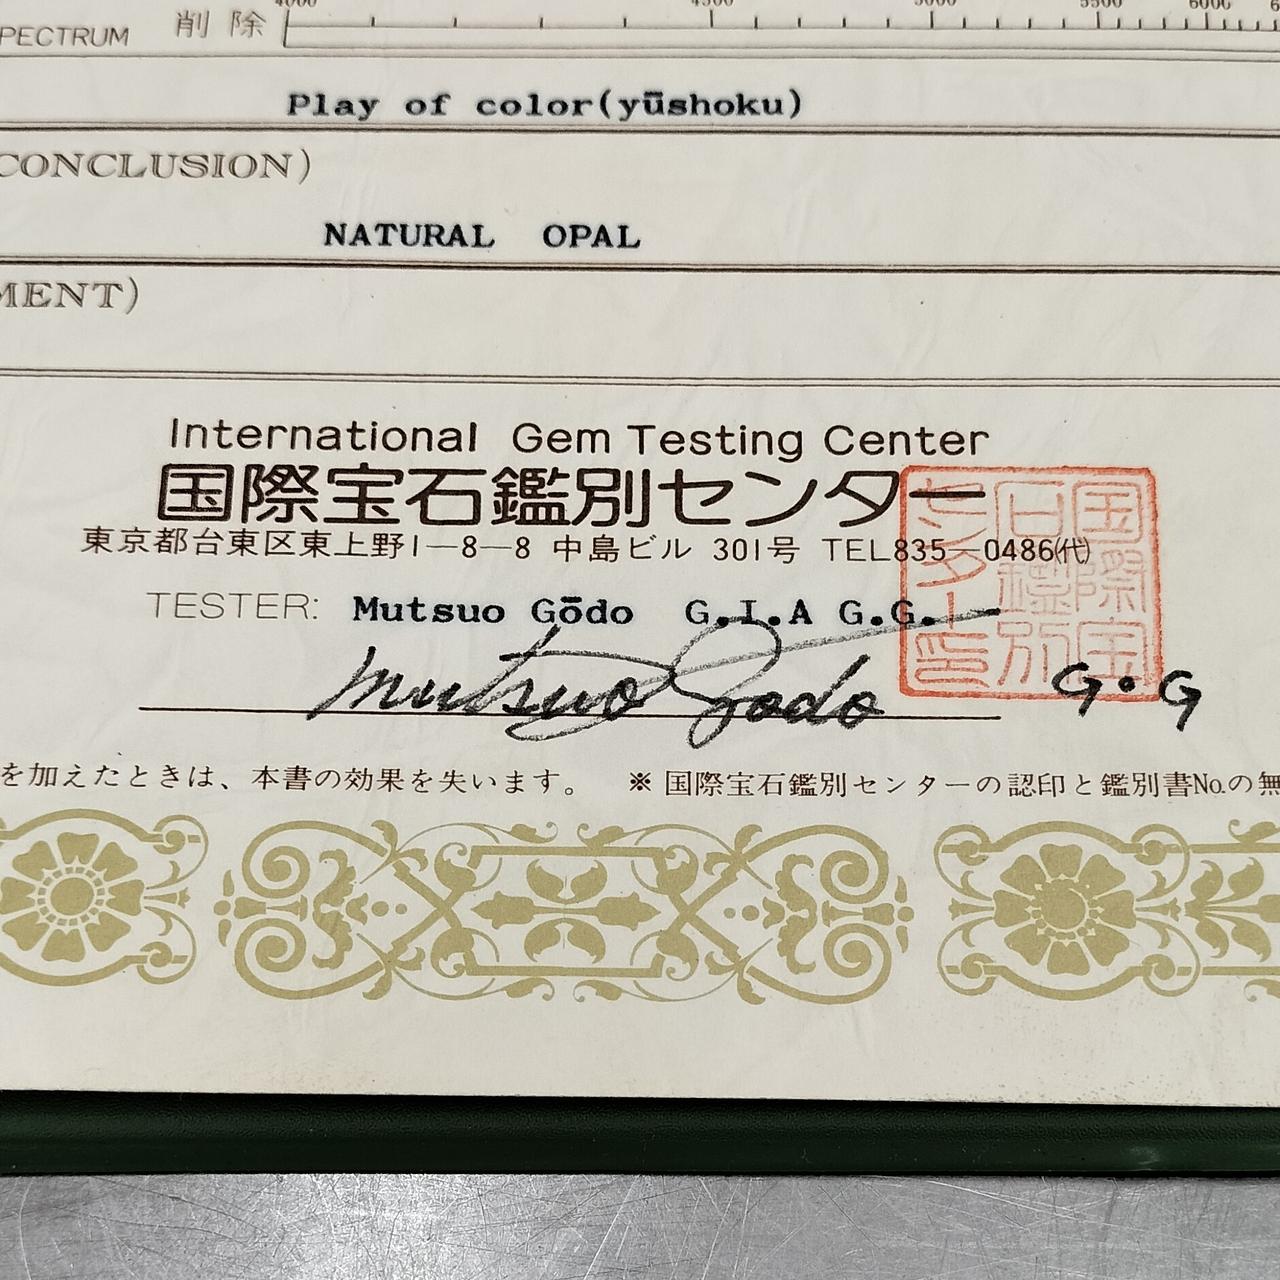 4000 4500 5000 5500 6000
PECTRUM 削除
Play of color(yūshoku)
CONCLUSION)
NATURAL OPAL
MENT)
International Gem Testing Center
国際宝石鑑別センター
東京都台東区東上野1—8—8 中島ビル 301号 TEL835—0486㈹
TESTER: Mutsuo Gōdo G.I.A G.G.
Mutsuo Godo G.G
国際宝石鑑別センター印
を加えたときは、本書の効果を失います。 ※国際宝石鑑別センターの認印と鑑別書No.の無